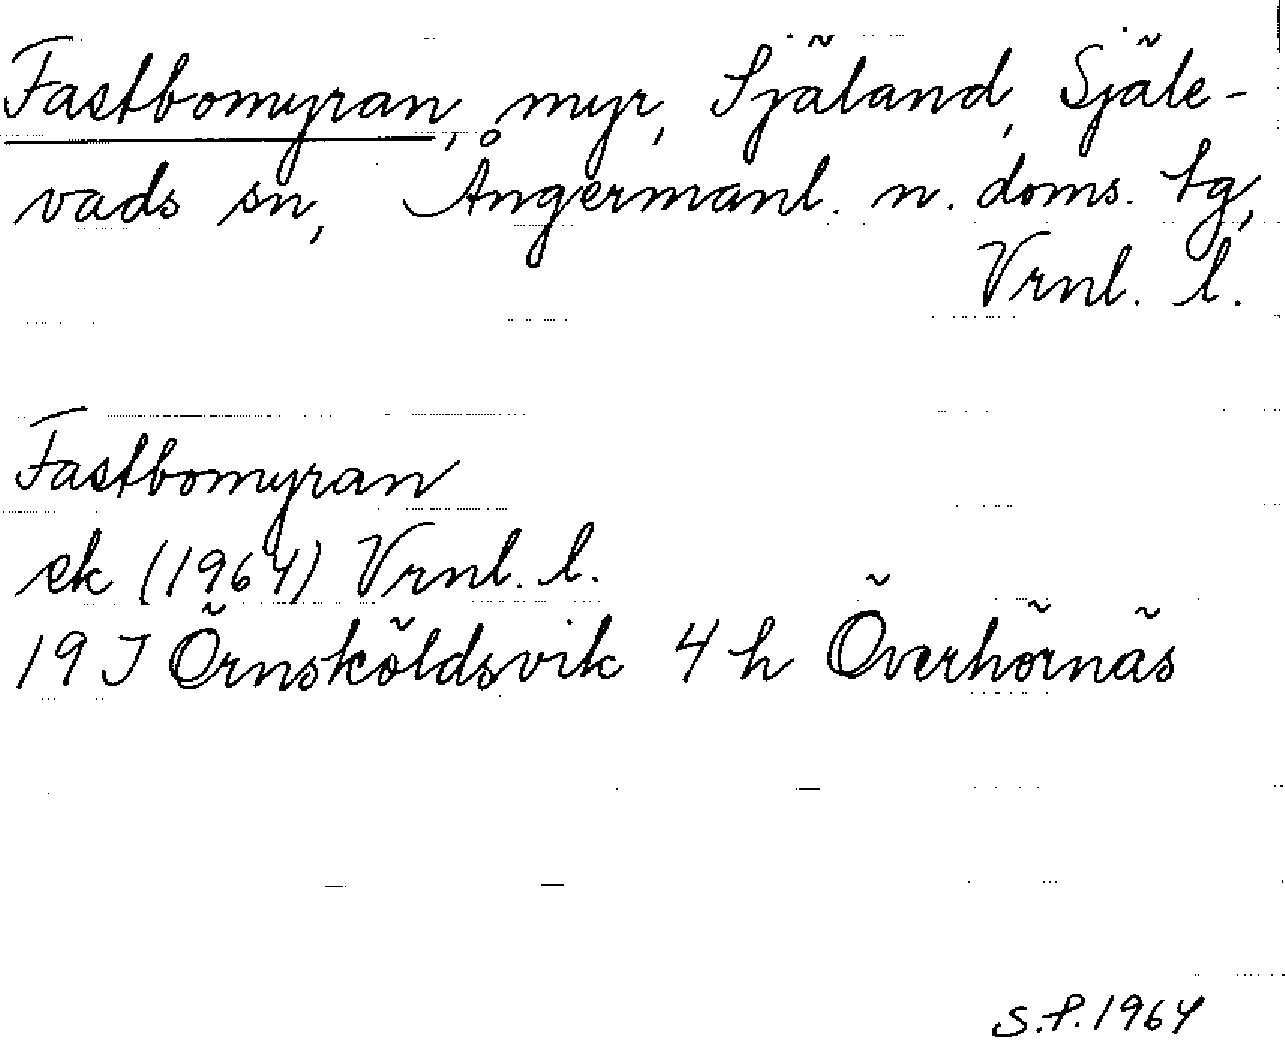 Fastbomyran, myr, Själand, Själe-
vads sn, Ångermanl. n. doms. tg,
Vrnl. l.
Fastbomyran
ek (1964) Vrnl. l.
19 J Örnsköldsvik 4 h Överhörnäs
S.P. 1964